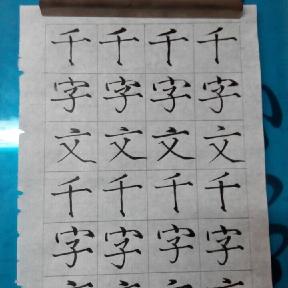 千千千千
字字字字
文文文文
千千千千
字字字字